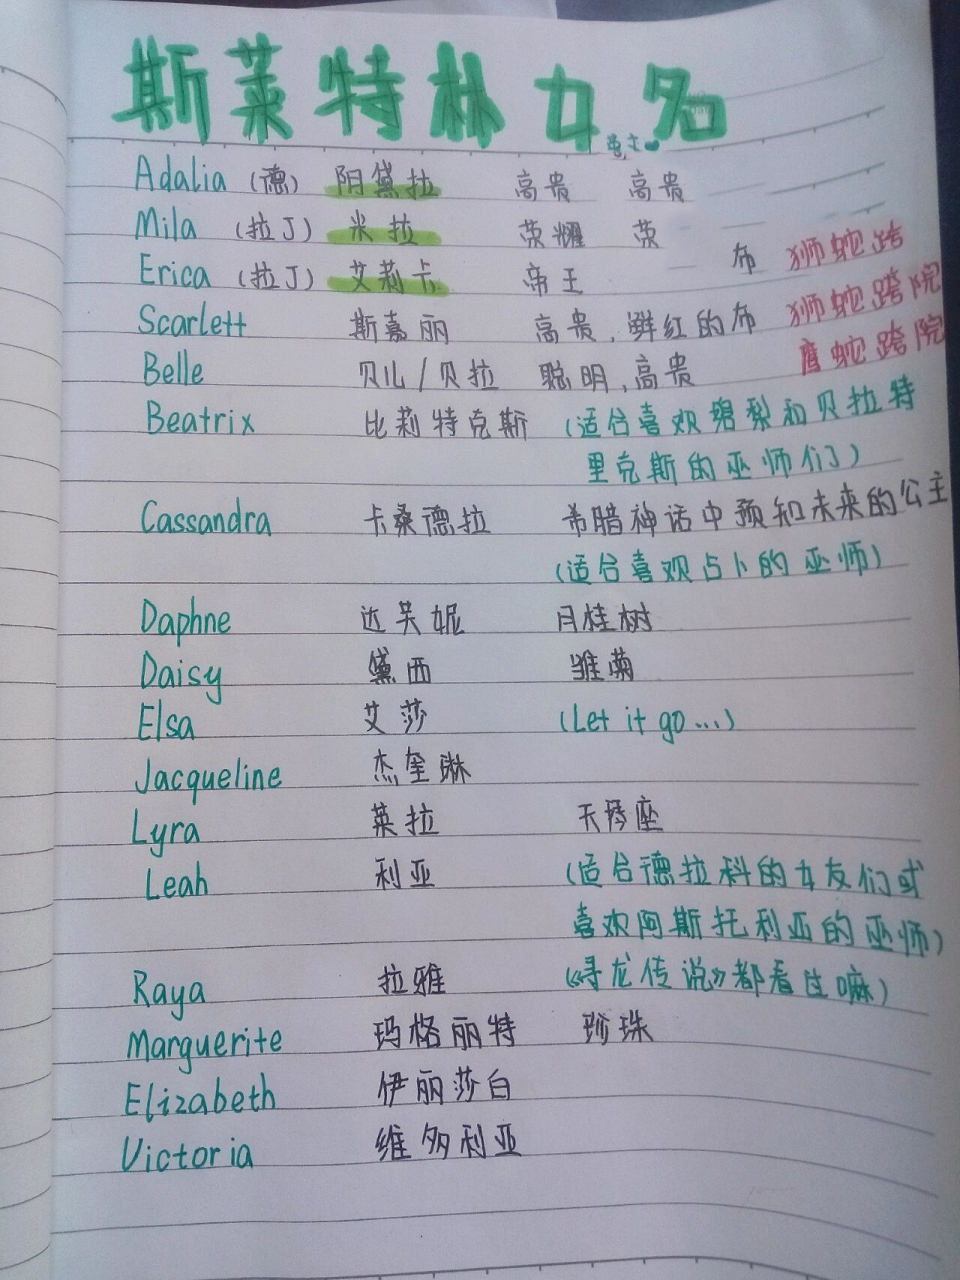 斯莱特林女名
Adalia (德) 阳黛拉 高贵 高贵
Mila (拉丁) 米拉 荣耀 荣
Erica (拉丁) 艾莉卡 帝王 布 狮蛇跨
Scarlett 斯嘉丽 高贵,鲜红的布 狮蛇跨院
Belle 贝儿/贝拉 聪明,高贵 鹰蛇跨院
Beatrix 比莉特克斯 (适合喜欢碧梨和贝拉特
里克斯的巫师们)
Cassandra 卡桑德拉 希腊神话中预知未来的公主
(适合喜欢占卜的巫师)
Daphne 达芙妮 月桂树
Daisy 黛西 雏菊
Elsa 艾莎 (Let it go...)
Jacqueline 杰奎琳
Lyra 莱拉 天琴座
Leah 利亚 (适合德拉科的女友们或
喜欢阿斯托利亚的巫师)
Raya 拉雅 (《寻龙传说》都看过嘛)
Marguerite 玛格丽特 珍珠
Elizabeth 伊丽莎白
Victoria 维多利亚